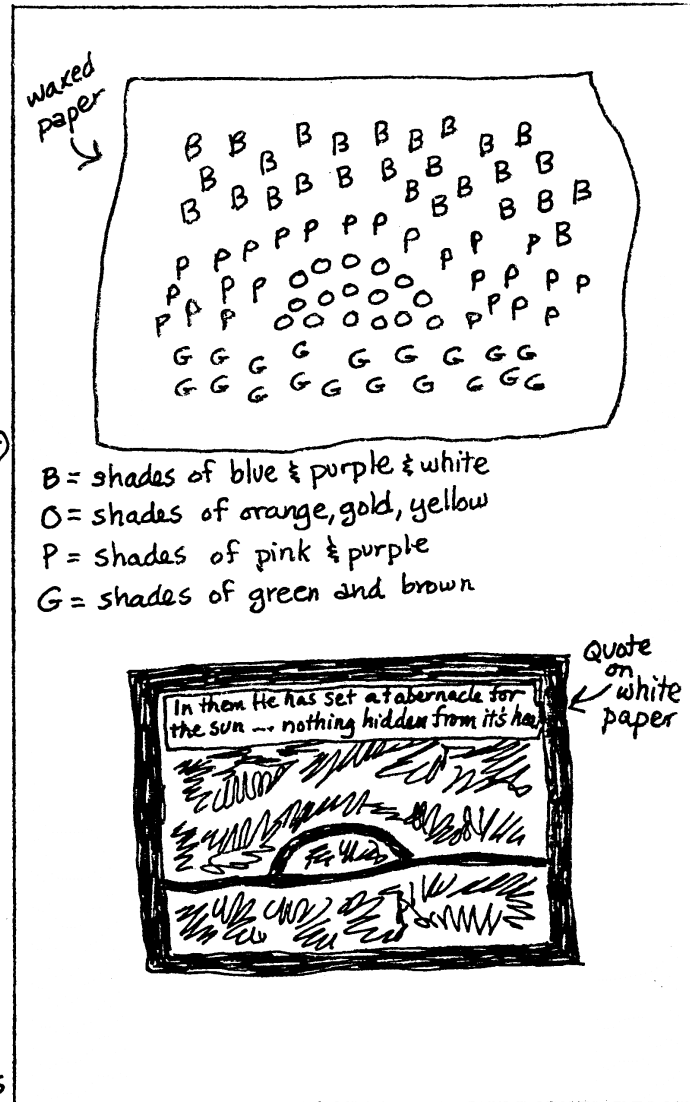 waxed
paper
B B B B B B B B B B
B B B B B B B
B B B B B B B B B
P P P P P P P P P P P B
P P P O O O O O P P P P
P P P O O O O O O O O O O O P P P P
G G G G G G G G G
G G G G G G G G G G
B = shades of blue & purple & white
O = shades of orange, gold, yellow
P = shades of pink & purple
G = shades of green and brown
Quote
on
white
paper
In them He has set a tabernacle for
the sun ... nothing hidden from it's hea